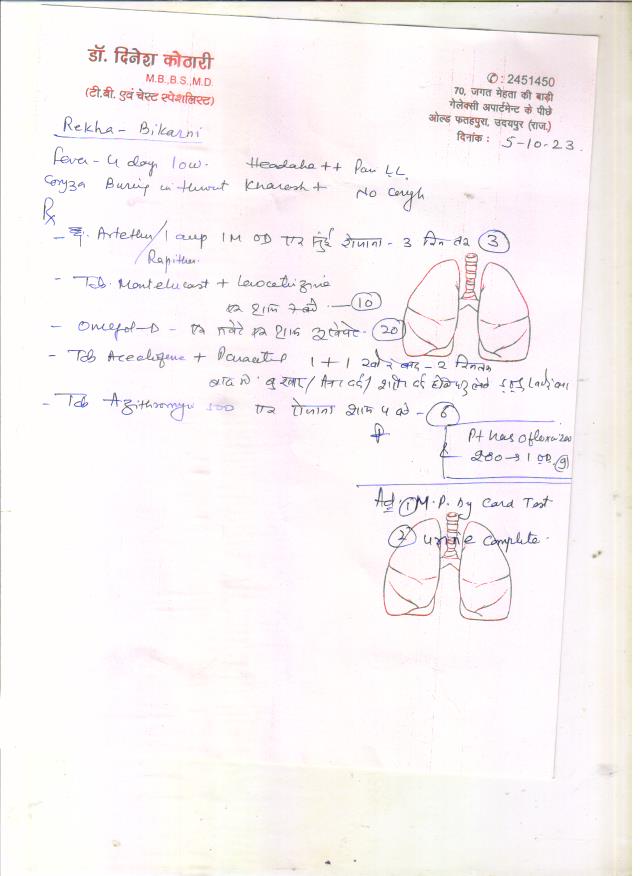 डॉ. दिनेश कोठारी
M.B.,B.S.,M.D.
(टी.बी. एवं चेस्ट स्पेशलिस्ट)
✆ : 2451450
70, जगत मेहता की बाड़ी
गेलेक्सी अपार्टमेन्ट के पीछे
ओल्ड फतहपुरा, उदयपुर (राज.)
दिनांक : 5-10-23
Rekha - Bikarni
Fever - 4 days low. Headahe ++ Pain LL
Coryza Burning in throat Kharash + No Cough
Rx
- Artether / 1 amp IM OD एक सुई रोजाना - 3 दिन तक (3)
Rapither
- Tab. Montelucast + Levocetrizine
एक शाम 7 बजे - (10)
- Omefol-D - एक सवेरे एक शाम (20)
- Tab Aceclofenac + Paracetl 1 + 1 खाने के बाद - 2 दिन तक
बाद में बुखार / दर्द / दर्द होने पर
- Tab Azithromycin 500 एक रोजाना शाम 4 बजे - (6)
Pt has Oflaxa 200
200 → 1 OD (9)
Ad. (1) M.P. by Card Test
(2) Urine Complete.